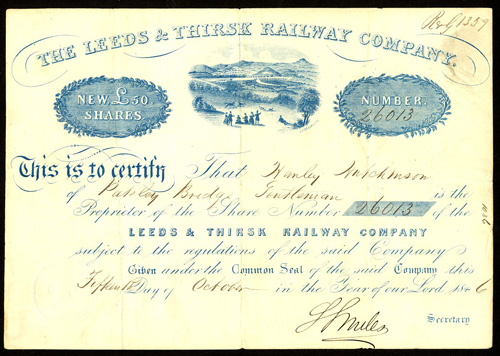 R&G 1339
THE LEEDS & THIRSK RAILWAY COMPANY.
NEW £50 SHARES.
NUMBER. 26013
This is to certify That Hanley Hutchinson
of Pateley Bridge Gentleman is the
Proprietor of the Share Number 26013 of the
LEEDS & THIRSK RAILWAY COMPANY
subject to the regulations of the said Company
Given under the Common Seal of the said Company this
Fifteenth Day of October in the Year of our Lord 1846
S Smiles
Secretary